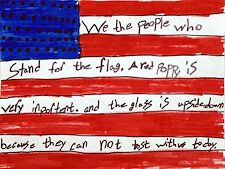 We the people who
Stand for the flag. A red POPPY is
very inportent. and the glass is upsidedown
because they can not tost withus today.